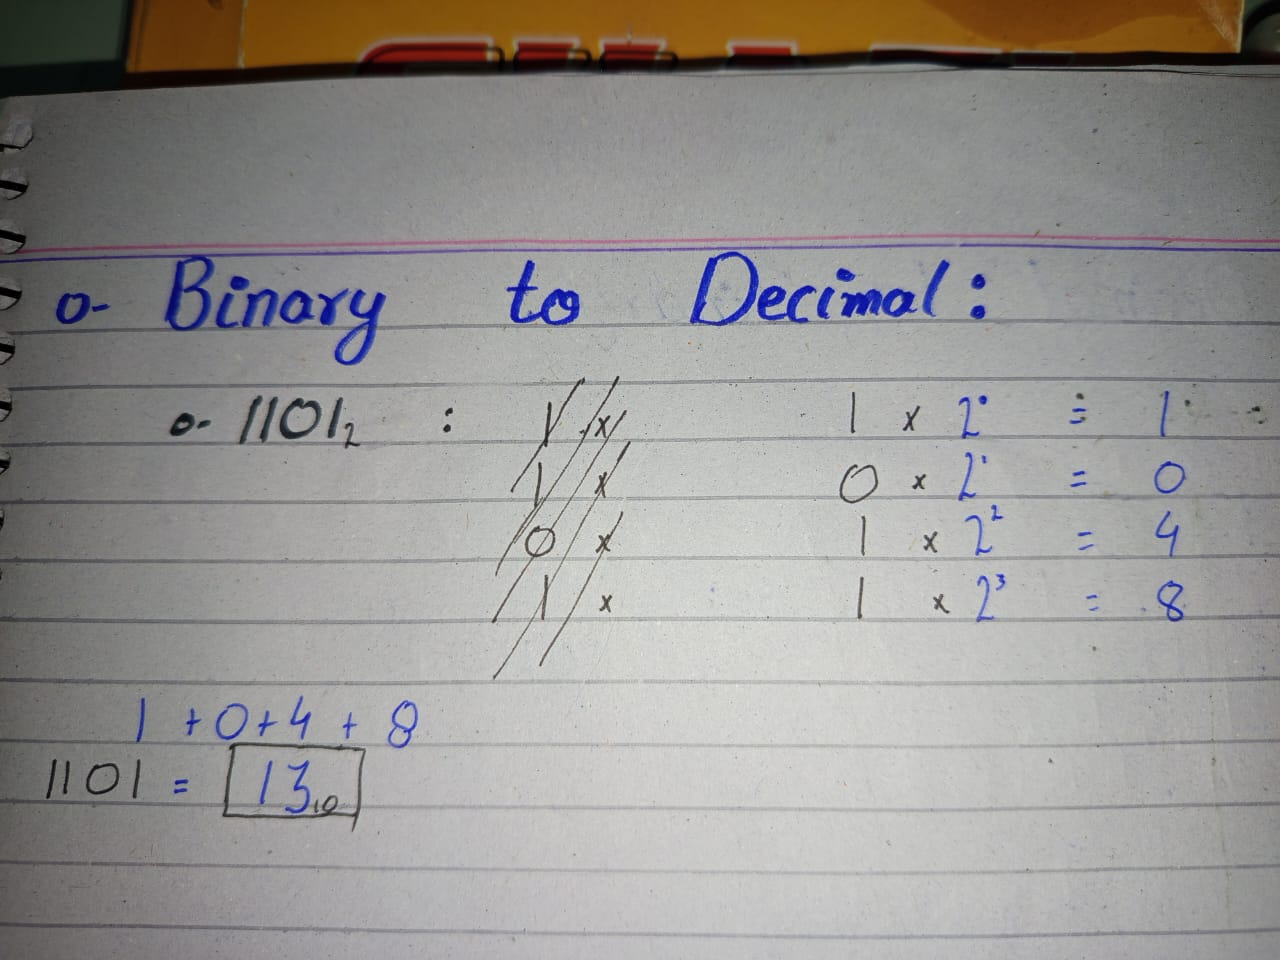 o- Binary to Decimal:
o- 1101₂ : 1 × 1 × 2⁰ = 1
1 × 0 × 2¹ = 0
0 × 1 × 2² = 4
1 × 1 × 2³ = 8
1 + 0 + 4 + 8
1101 = 13₁₀